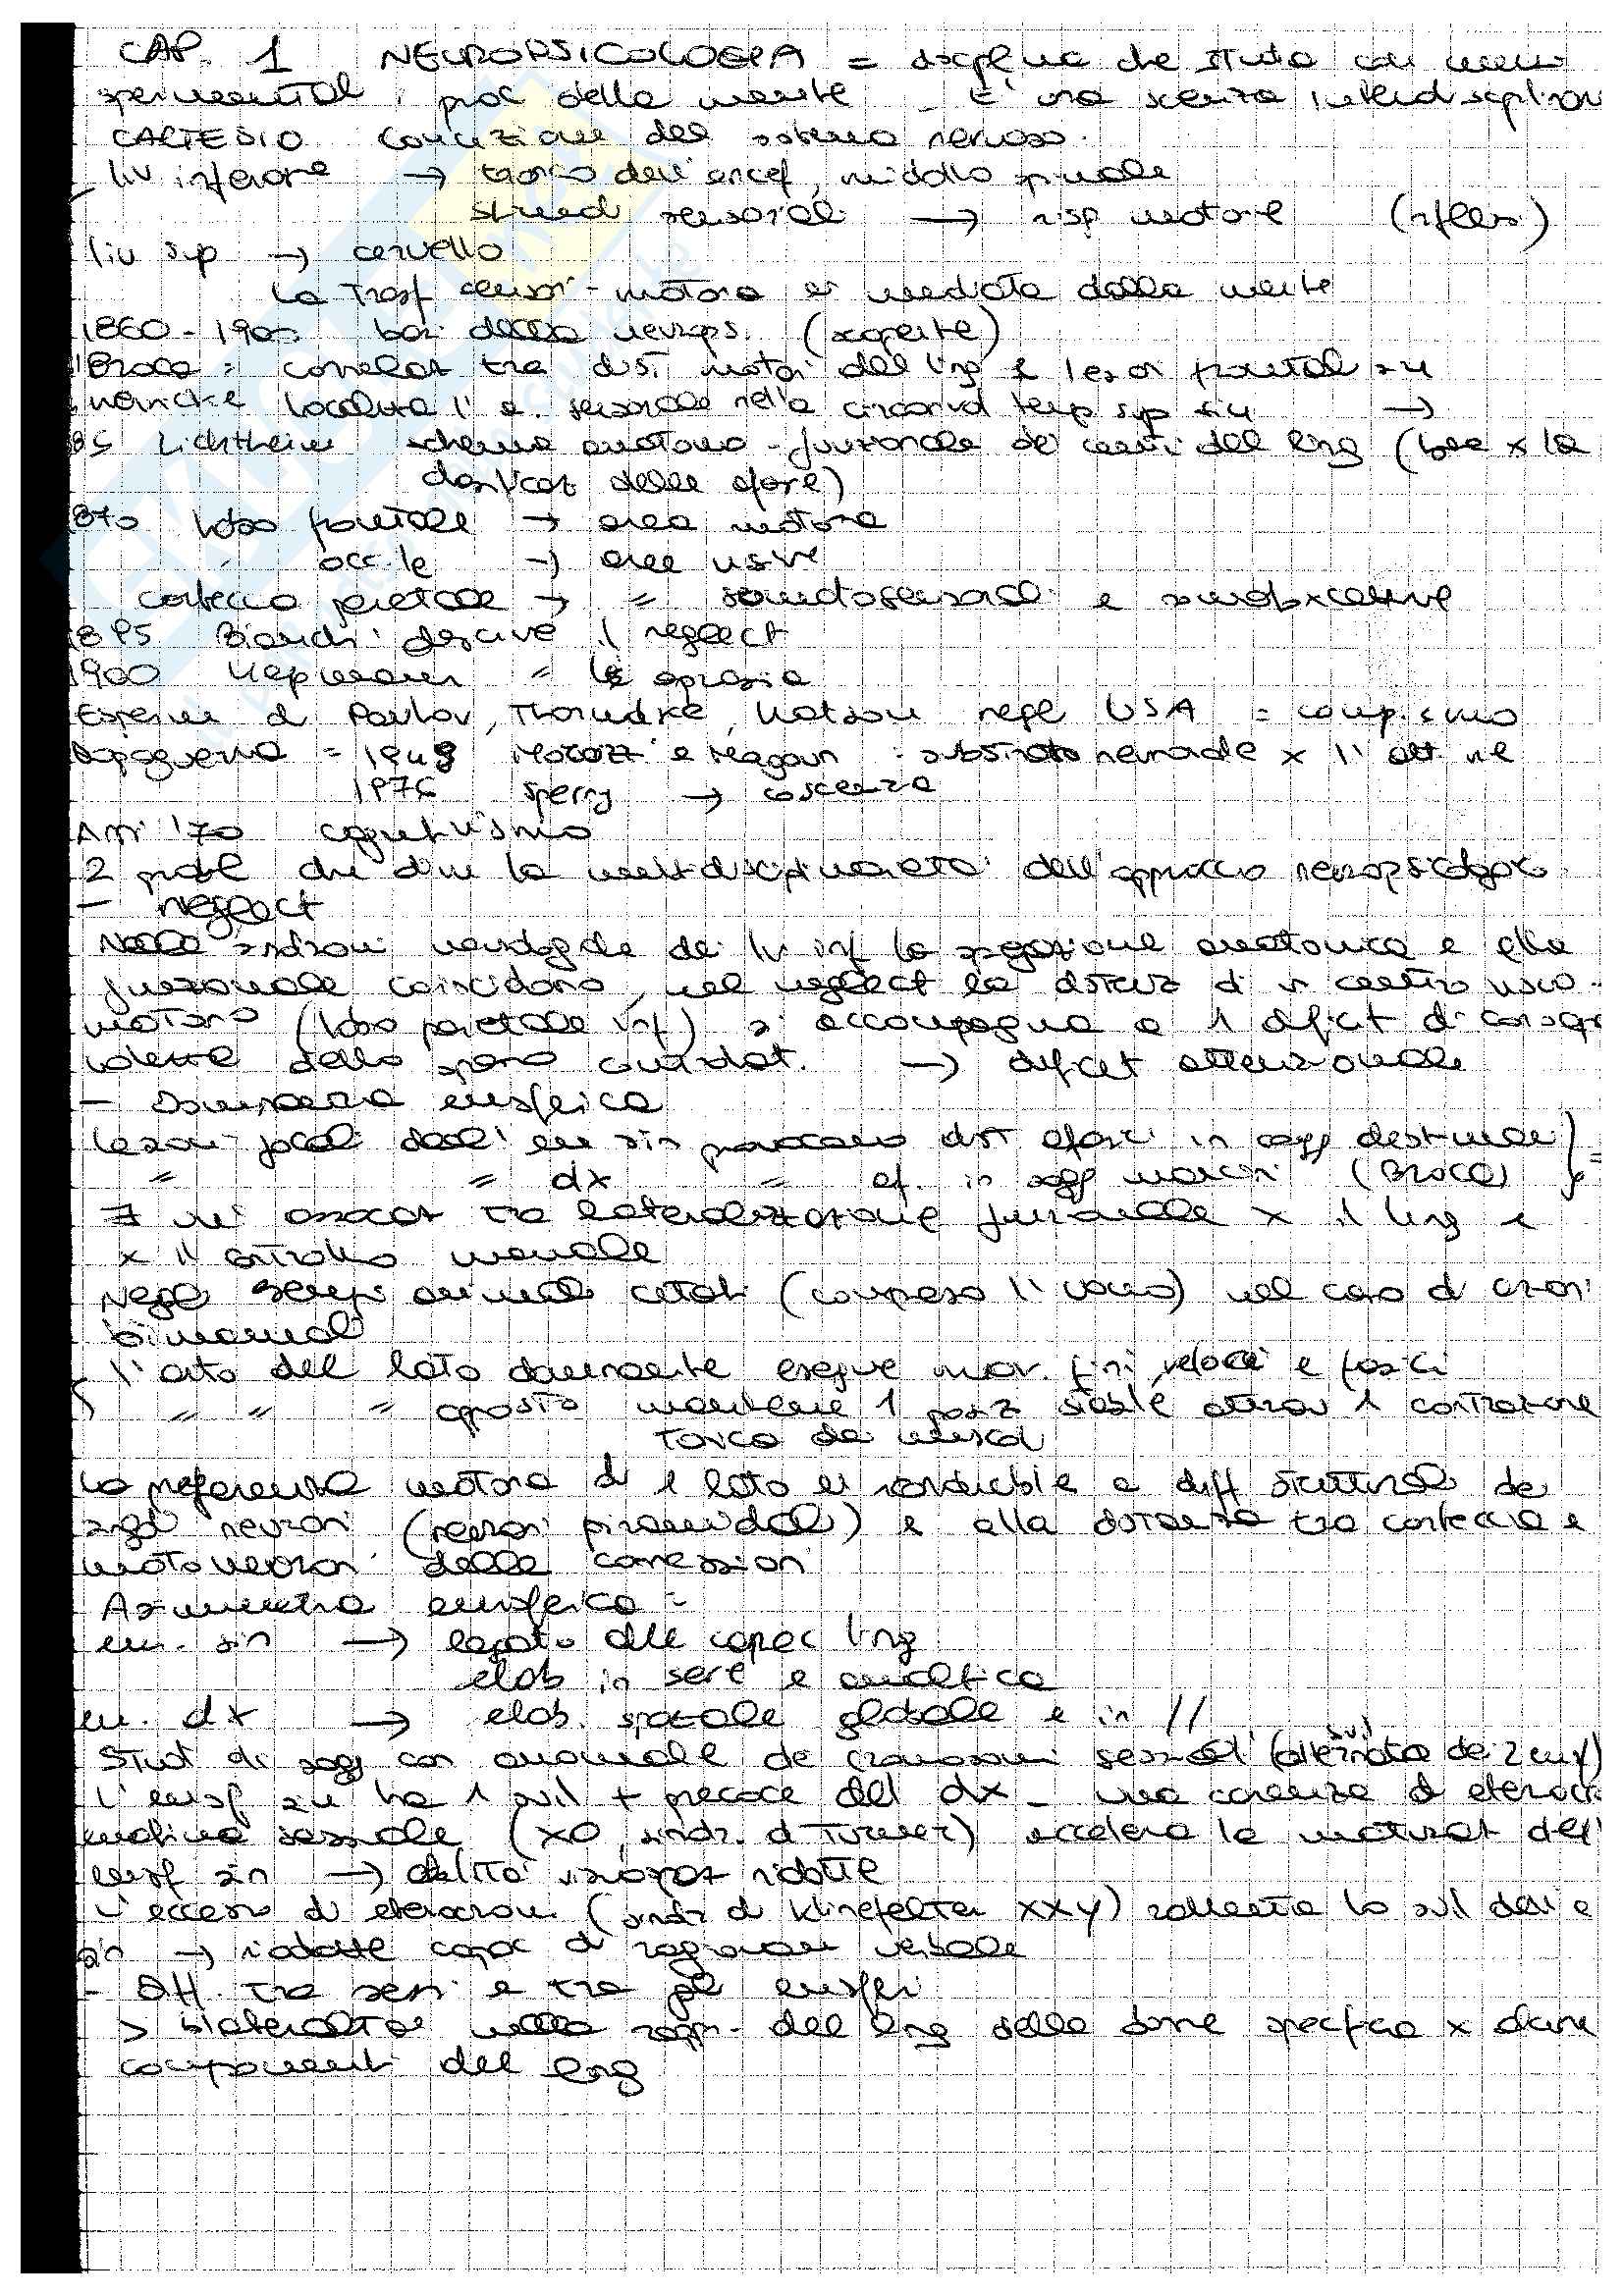 CAP. 1 NEUROPSICOLOGIA = che studia con
sperimentali i proc della mente _ E' una scienza interdisciplinare
CARTESIO concezione del sistema nervoso.
- liv inferiore → tronco dell'encef, midollo spinale
stimoli sensoriali → risp motorie (riflessi)
liv sup → cervello
la trasf sensori-motoria è mediata dalla mente
1860-1900 basi della neurops. (scoperte)
Broca = correlaz tra dist motori del ling e lesioni frontali sn
Wernicke localizza l'a. sensoriale nella circonvol temp sup sin →
85 Lichtheim schema anatomo-funzionale dei centri del ling (base x la
classificaz delle afasie)
870 lobo frontale → area motoria
" occ.le → aree visive
corteccia parietale → = somatosensoriali e
1895 Bianchi descrive il neglect
1900 Liepmann = le aprassia
Esperim di Pavlov, Thorndike, Watson negli USA = comp.ismo
Dopoguerra = 1949 Moruzzi e Magoun substrato neuronale x l'att. ne
1976 Sperry → coscienza
Anni '70 cognitivismo
2 probl che dim la multidisciplinarietà dell'approccio neuropsicologico
- neglect
Nelle sindromi neurologiche dei liv inf la spiegazione anatomica e quella
funzionale coincidono, nel neglect la distruz di 1 centro visuo-
motorio (lobo parietale inf) si accompagna a 1 deficit di consap
dello spazio controlat. → deficit attenzionale
- Dominanza emisferica
Lesioni focali dell'em sin provocano dist afasici in sogg destrimani)
" " dx = af. in sogg mancini (Broca) =
∃ un' associaz tra lateralizzazione funzionale x il ling e
x il controllo manuale
Negli animali (compreso l'uomo) nel caso di azioni
bimanuali
- l'arto del lato dominante esegue mov. fini, veloci e fasici
- " " " opposto mantiene 1 posiz stabile attrav 1 contrazione
tonica dei muscoli
La preferenza motoria di 1 lato è riconducibile a diff strutturali dei
singoli neuroni (neuroni piramidali) e alla distanza tra corteccia e
motoneuroni delle connessioni
Asimmetria emisferica =
em. sin → legato alle capac ling
elab in serie e analitica
em. dx → elab. spaziale globale e in //
Studi di sogg con anomalie dei cromosomi sessuali (svil alternato dei 2 emisf)
L'emisf sn ha 1 svil + precoce del dx _ una carenza di eterocro
matina sessuale (XO, sindr. di Turner) accelera la maturaz dell'
emisf sin → abilità visuospaz ridotte
L'eccesso di eterocrom. (sindr di Klinefelter XXY) rallenta lo svil dell'e
sin → ridotte capac di ragionam verbale
- Diff. tra sessi e tra gli emisferi
> bilateralità nella rappr. del ling delle donne specifica x alcune
componenti del ling